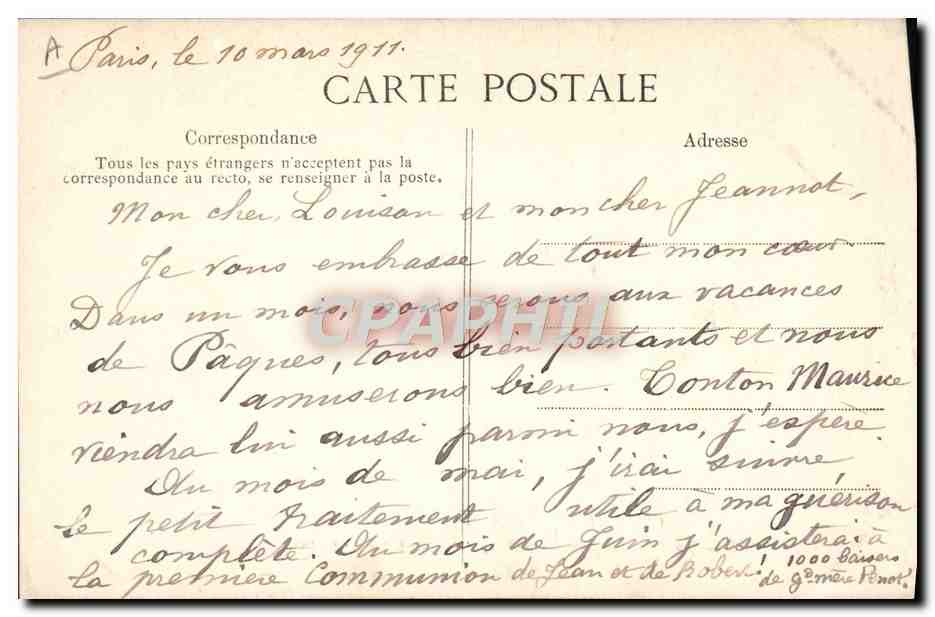 A
Paris, le 10 mars 1911.
CARTE POSTALE
Correspondance
Adresse
Tous les pays étrangers n'acceptent pas la
correspondance au recto, se renseigner à la poste.
Mon cher Louison et mon cher Jeannot,
Je vous embrasse de tout mon cœur.
Dans un mois, nous serons aux vacances
CPAPHIL
de Pâques, tous bien portants et nous
nous amuserons bien. Tonton Maurice
viendra lui aussi parmi nous, j'espère
Au mois de mai, j'irai suivre
le petit traitement utile à ma guérison
complète. Au mois de Juin j'assisterai à
la première Communion de Jean et de Robert!
1000 baisers
de gd mère Penot.